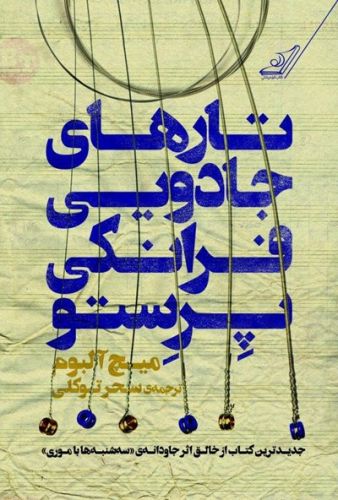 تارهای
جادویی
فرانکی
پرِستو
میچ آلبوم
ترجمه‌ی سحر توکلی
جدیدترین کتاب از خالق اثر جاودانه‌ی «سه‌شنبه‌ها با موری»